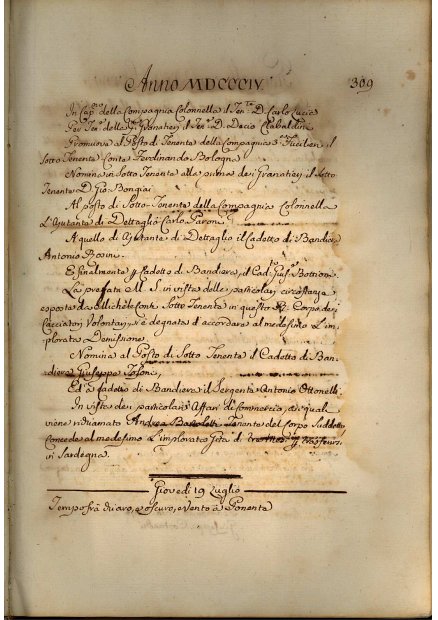 Anno MDCCCIV.
309
In Cap.no della Compagnia Colonnella il Ten.te D. Carlo Lucia
Per Ten.e della Granatieri il Ten.e D. Decio
Promuove al Posto di Tenente della Compagnia 3.a Fucilieri il
Sotto Tenente Conte Ferdinando Bologna
Nomina in Sotto Tenente alla prima dei Granatieri il Sotto
Tenente D. Gio Bongiai
Al posto di Sotto-Tenente della Compagnia Colonnella
L'Ajutante di Dettaglio Carlo Peroni
A quello di Ajutante di Dettaglio il Cadetto di Bandiera
Antonio Bosini.
E finalmente p Cadetto di Bandiera, il Cad.o Gius.e Bottioni.
La prefata M. S. in vista delle particolari circostanze
esposte da Michele Conti Sotto Tenente in questo R. Corpo dei
Cacciatori Volontarj, si è degnata d'accordare al medesimo l'im-
plorata Demissione.
Nomina al Posto di Sotto Tenente il Cadetto di Ban-
diera Giuseppe Tosoni,
Ed a Cadetto di Bandiera il Sergente Antonio Ottonelli.
In vista dei particolari Affari di Commercio, ai quali
viene richiamato Andrea Bartolotti Tenente del Corpo Suddetto
Concede al medesimo l'implorata p trasferirsi
in Sardegna.
Giovedì 19 Luglio
Tempo frà chiaro, e oscuro, e vento à Ponente